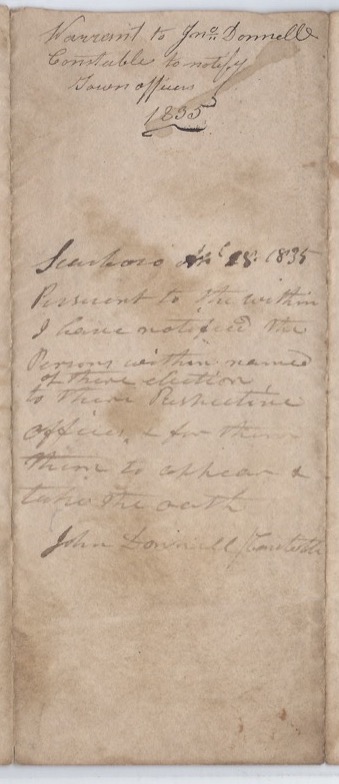 Warrant to Jnon. Donnell
Constable to notify
Town officers
1835
Scarboro 28. 1835
Pursuent to the within
I have notified the
Persons within named
of there election
to there Respective
offices, & for
them to appear &
take the oath
John Donnell Constable